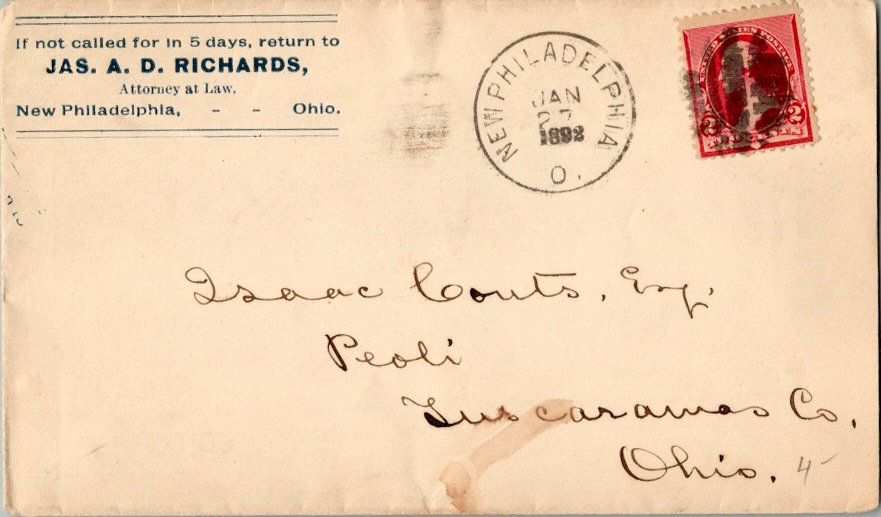 If not called for in 5 days, return to
JAS. A. D. RICHARDS,
Attorney at Law,
New Philadelphia, - - Ohio.
NEW PHILADELPHIA
JAN
27
1892
O.
2 2
Isaac Couts, Esq.
Peoli
Tuscarawas Co,
Ohio.
4